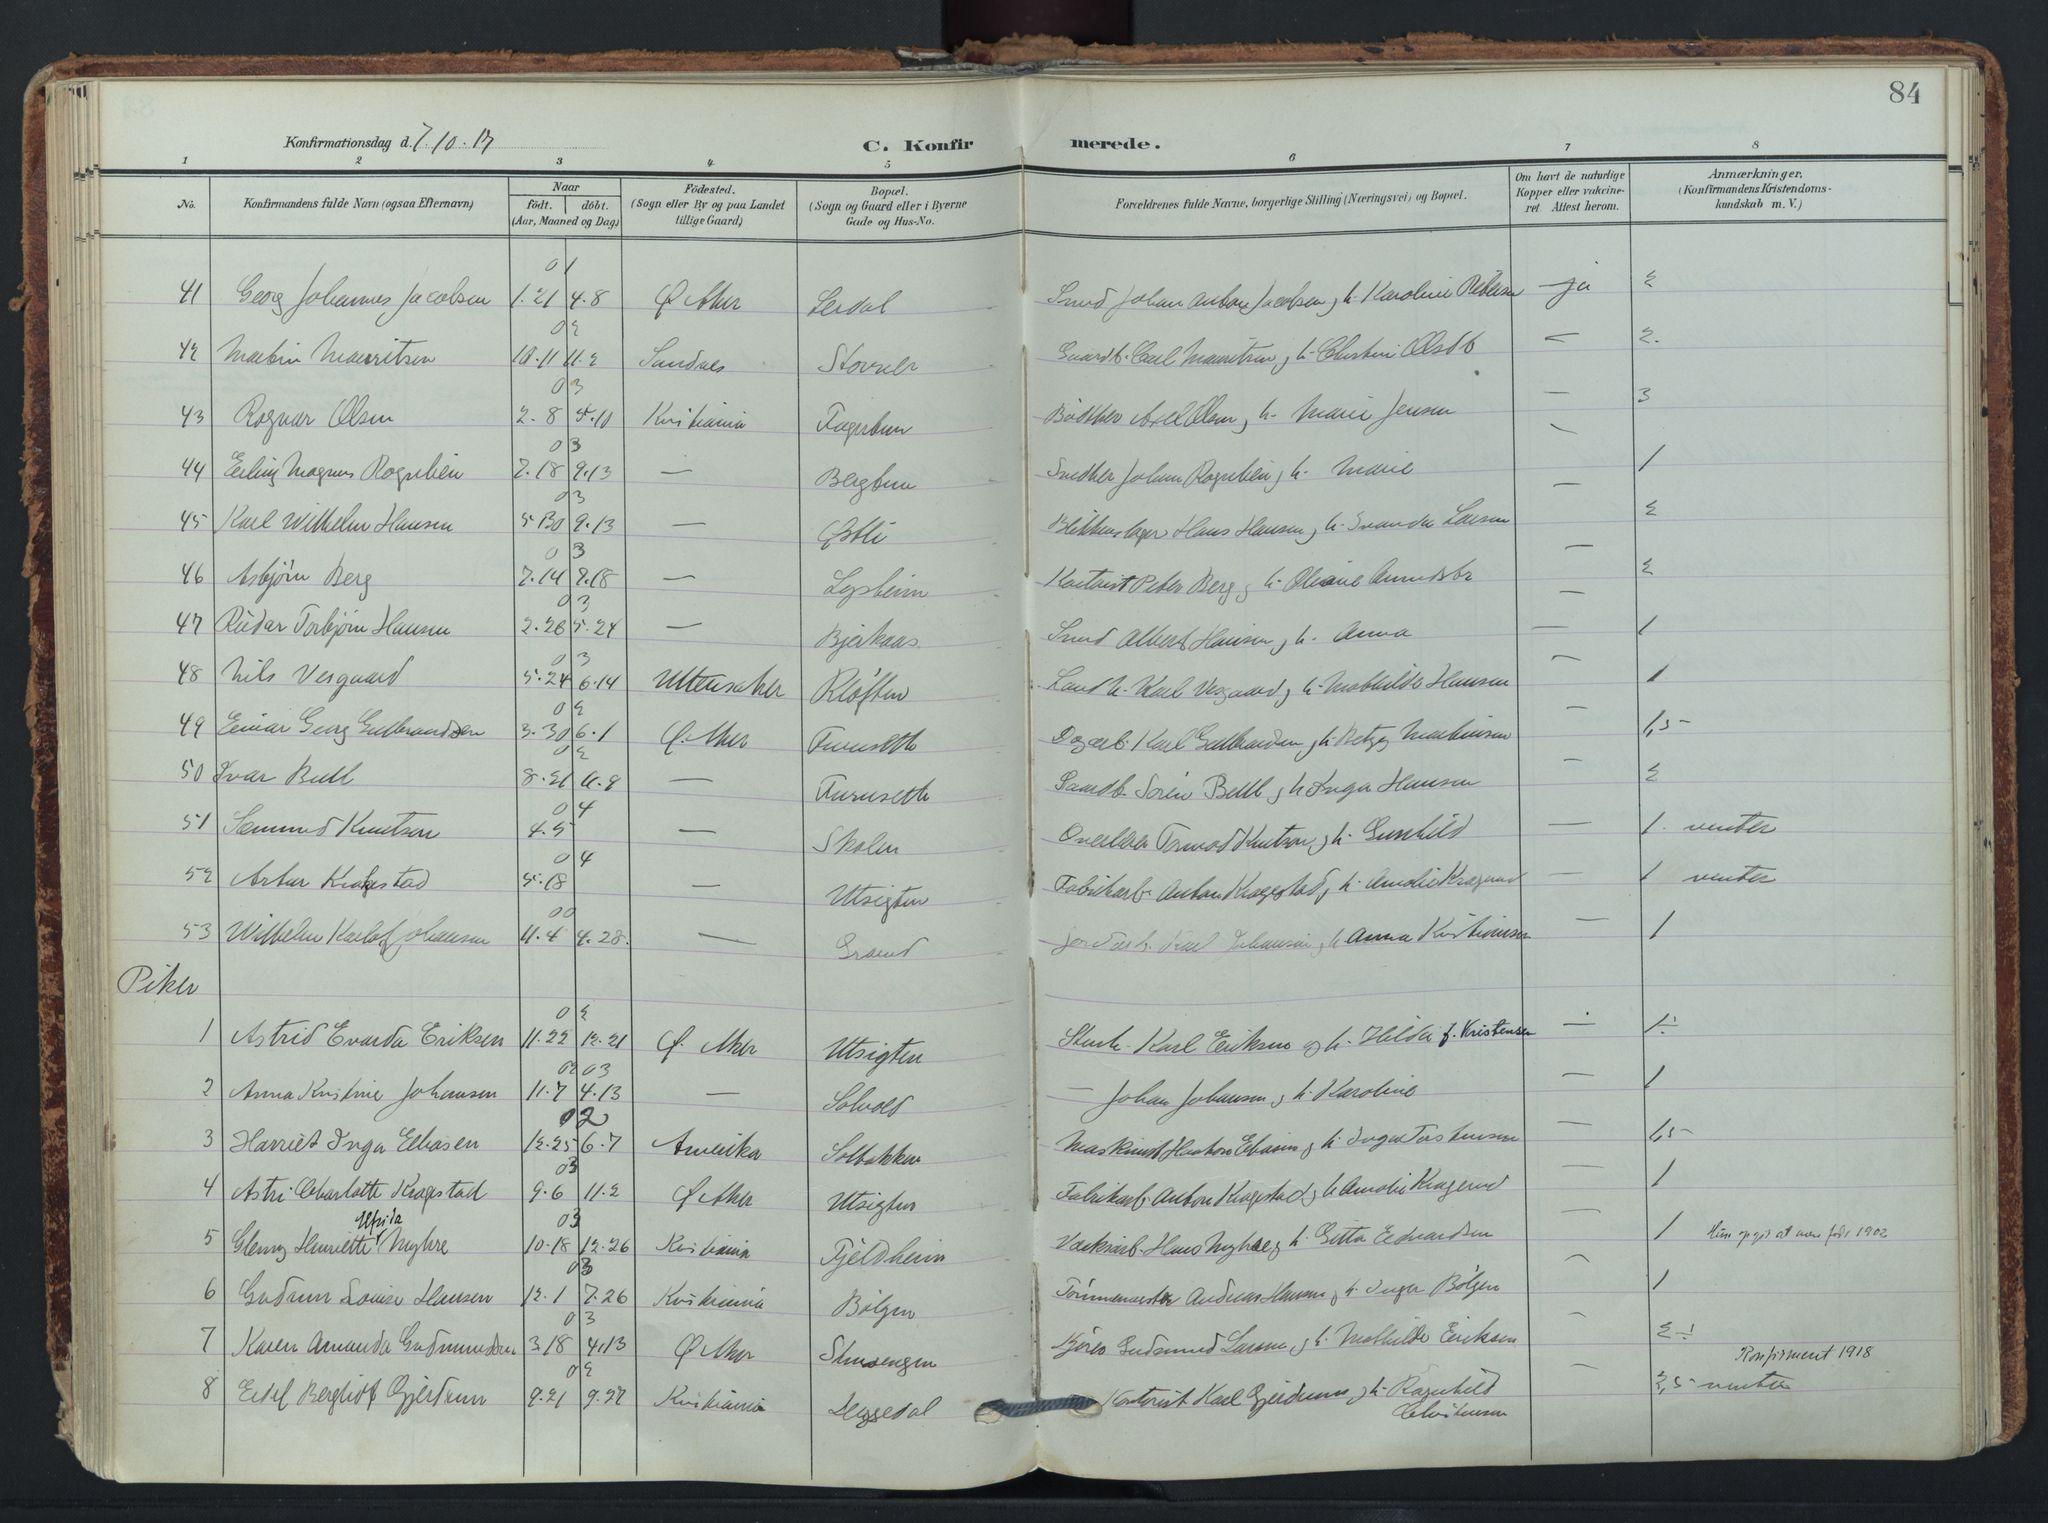 84
Konfirmationsdag d. 7.10.17
C. Konfirmerede.
1 2 3 4 5 6 7 8
No.
Konfirmandens fulde Navn (ogsaa Efternavn)
Naar
født. døbt.
(Aar, Maaned og Dag)
Fødested.
(Sogn eller By og paa Landet tillige Gaard)
Bopæl.
(Sogn og Gaard eller i Byerne Gade og Hus-No.
Forældrenes fulde Navne, borgerlige Stilling (Næringsvei) og Bopæl.
Om havt de naturlige Kopper eller vakcineret. Attest herom.
Anmærkninger.
(Konfirmandens Kristendomskundskab m. V.)
01
41 Georg Johannes Jacobsen 1.21 4.8 Ø. Aker Lerdal Smed Johan Anton Jacobsen, h. Karoline — ja 2
02
42 Martin Mauritsen 10.11 11.2 Stovner Gaardb. Carl Mauritsen, h. — 2.
03
43 Ragnar Olsen 2.8 5.10 Kristiania Fagertun Bødtker Axel Olsen, h. Marie Jensen — 3
03
44 Erling Magnus Rognlien 7.18 9.13 — Bergtun Snedker Johan Rognlien, h. Marie — 1
03
45 Karl Wilhelm Hansen 5.30 9.13 — Østli Blikkenslager Hans Hansen, h. Svanda Larsen — 2
03
46 Asbjørn Berg 7.14 9.18 — Lysheim Kontorist Peter Berg, h. — 2
03
47 Reidar Torbjørn Hansen 2.26 5.24 — Bjerkaas Smed Albert Hansen, h. Anna — 1
03
48 Nils Vesgaard 5.24 6.14 Ullensaker Kløften Karl Vesgaard, h. Mathilde Hansen — 1
02
49 Einar Georg Gulbrandsen 3.30 6.1 Ø. Aker Furuseth Dagarb. Karl Gulbrandsen, h. Martinsen — 1,5
02
50 Ivar Bull 8.21 11.9 — Furuseth Gaardb. Søren Bull, h. Inga Hansen — 2
04
51 Sæmund Knutson 4.5 — Skolen Overlærer Tormod Knutson, h. Gunhild — 1. venter
04
52 Artur Kragestad 5.18 — Utsigten Fabrikarb. Anton Kragestad, h. Amalie Kragerud — 1 venter
00
53 Wilhelm Karlof Johansen 11.4 4.28. — Jordarb. Karl Johansen, h. Anna Kristiansen — 1
Piker
02
1 Astrid Evarda Eriksen 11.22 12.21 Ø. Aker Utsigten Karl Eriksen og h. Hilda f. Kristensen — 1÷
02 03
2 Anna Kristine Johansen 11.7 4.13 — Solvold — Johan Johansen, h. Karoline — 1
02
3 Harriet Inga Eliasen 12.25 6.7 Amerika Solbakken Maskinist Haakon Eliasen, h. Inga Torstensen — 1,5
03
4 Astri Charlotte Kragestad 9.6 11.2 Ø. Aker Utsigten Fabrikarb. Anton Kragestad, h. Amalie Kragerud — 1
Alfrida 03
5 Glenny Henriette Myhre 10.18 12.26 Kristiania Fjeldheim Verksarb. Hans Myhre, h. Gitta Edvardsen — 1 Hun opgir at være født 1902
03
6 Gudrun Louise Hansen 12.1 7.26 Kristiania Bølgen Tømmermester Andreas Hansen, h. Inga Bølgen — 1
03
7 Karen Amanda Gudmundsen 3.18 4.13 Ø. Aker Stensengen Kjører Gudmund Larsen, h. Mathilde Eriksen — 2÷
02
8 Edel Bergliot Gjerdrum 9.21 9.27 Kristiania Kontorist Karl Gjerdrum, h. Ragnhild Christensen — 2,5 venter
Konfirmert 1918